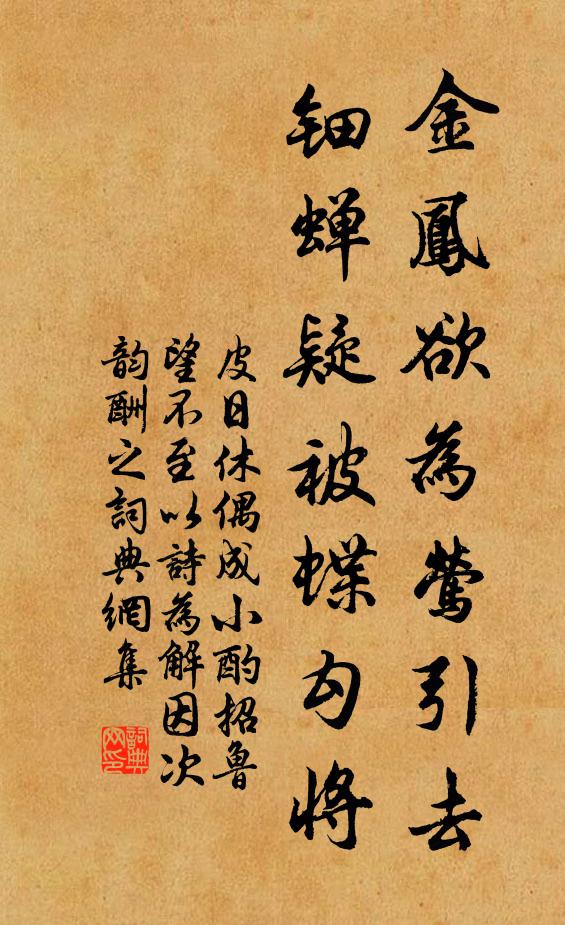 金鳳欲為鶯引去
鈿蝉疑被蝶勾將
皮日休偶成小酌招魯
望不至以詩為解因次
韵酬之詞典網集
詞典
网印